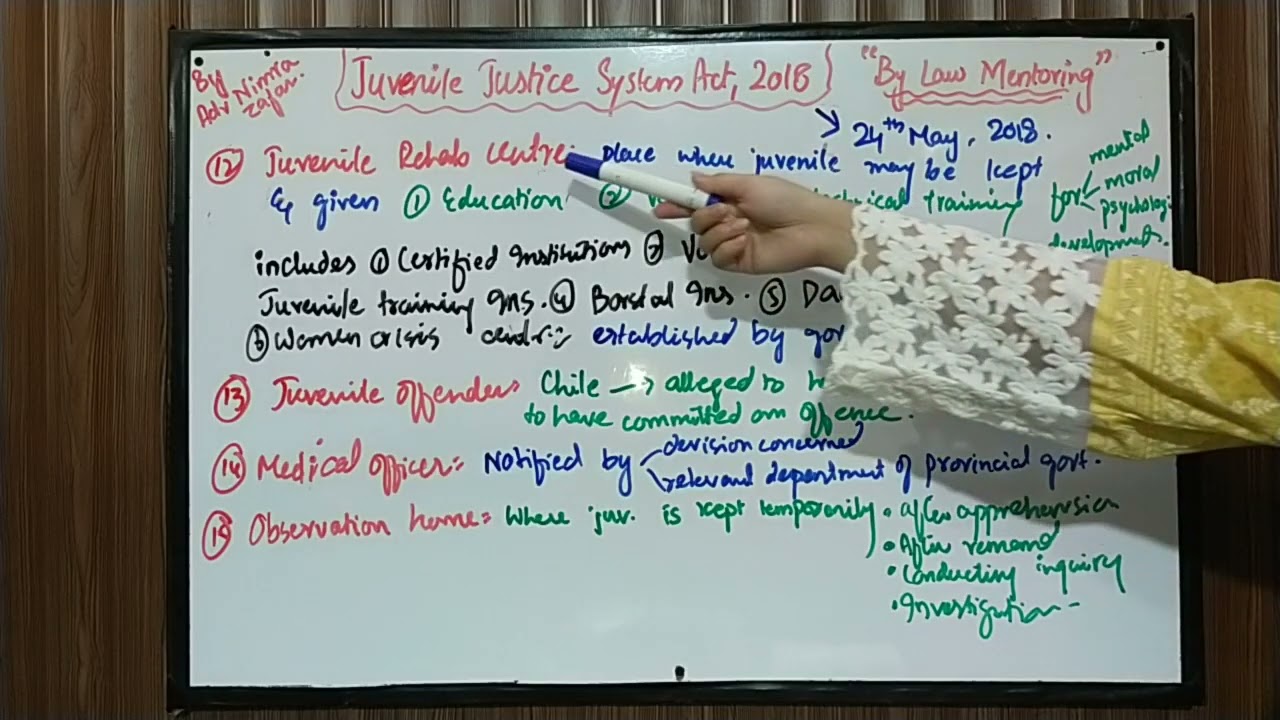 By
Adv Nimra
Zafar.
Juvenile Justice System Act, 2018
"By Law Mentoring"
→ 24th May, 2018.
(12) Juvenile Rehab Centre: place where juvenile may be kept
& given ① Education ② training for
mental
moral
psychologi
development.
includes ① Certified Institutions
Juvenile training Ins. ④ Borstal Ins. ⑤ Da
⑥ Women crisis established by gov
(13) Juvenile offender: Chile → alleged to
to have committed an offence.
(14) Medical officer: Notified by
devision concerned
relevand department of provincial govt.
(15) Observation home: Where juv. is kept temporarily
• after apprehension
• After remand
• Conducting inquiry
• Investigation -